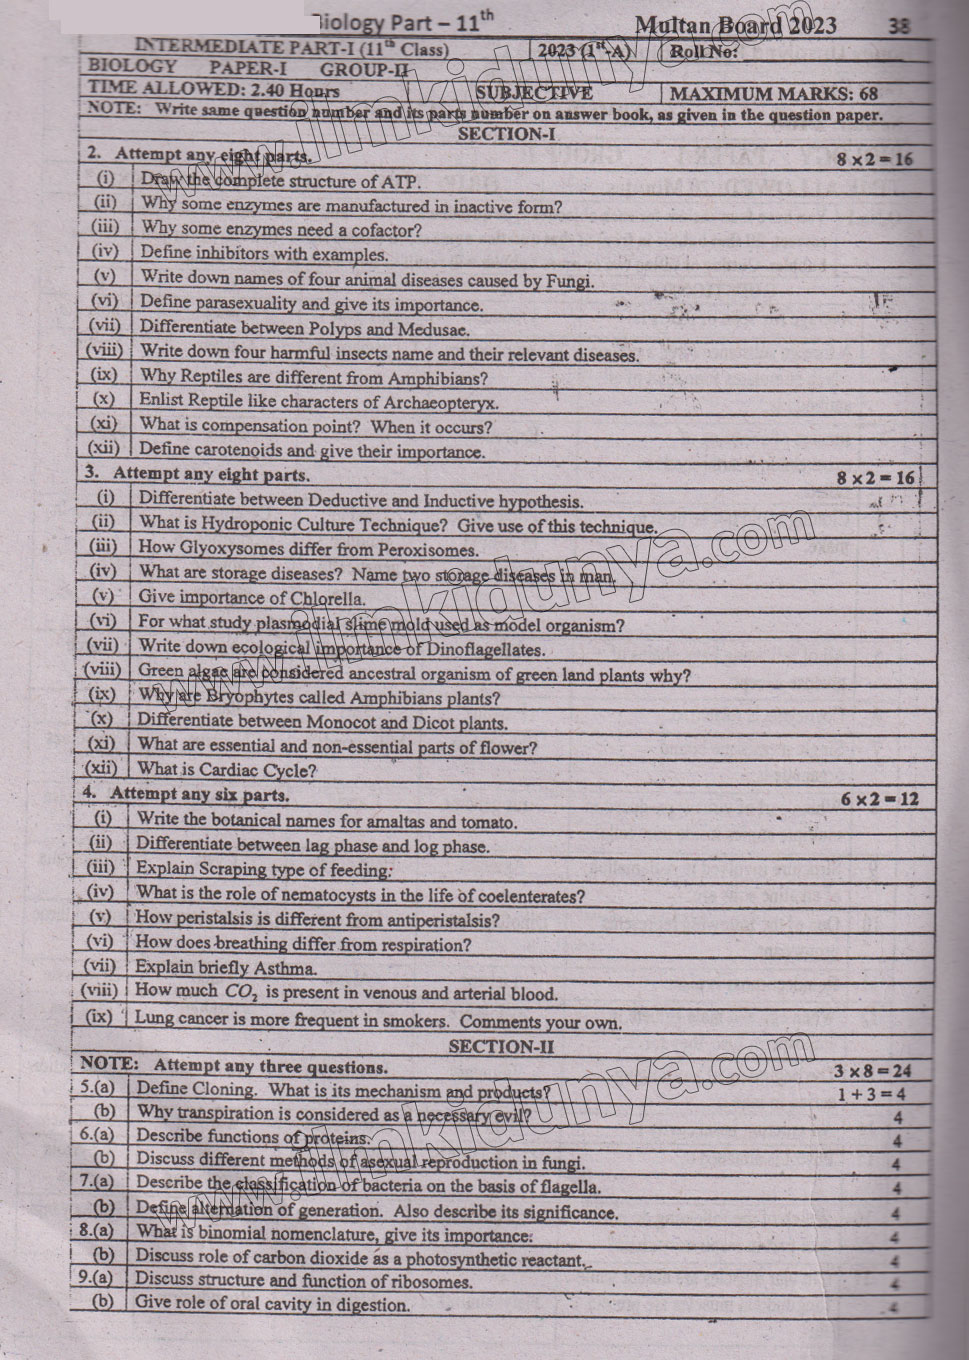 Biology Part – 11th Multan Board 2023 38
INTERMEDIATE PART-I (11th Class) 2023 (1st-A) Roll No:
BIOLOGY PAPER-I GROUP-II
TIME ALLOWED: 2.40 Hours SUBJECTIVE MAXIMUM MARKS: 68
NOTE: Write same question number and its parts number on answer book, as given in the question paper.
SECTION-I
2. Attempt any eight parts. 8 × 2 = 16
(i) Draw the complete structure of ATP.
(ii) Why some enzymes are manufactured in inactive form?
(iii) Why some enzymes need a cofactor?
(iv) Define inhibitors with examples.
(v) Write down names of four animal diseases caused by Fungi.
(vi) Define parasexuality and give its importance.
(vii) Differentiate between Polyps and Medusae.
(viii) Write down four harmful insects name and their relevant diseases.
(ix) Why Reptiles are different from Amphibians?
(x) Enlist Reptile like characters of Archaeopteryx.
(xi) What is compensation point? When it occurs?
(xii) Define carotenoids and give their importance.
3. Attempt any eight parts. 8 × 2 = 16
(i) Differentiate between Deductive and Inductive hypothesis.
(ii) What is Hydroponic Culture Technique? Give use of this technique.
(iii) How Glyoxysomes differ from Peroxisomes.
(iv) What are storage diseases? Name two storage diseases in man.
(v) Give importance of Chlorella.
(vi) For what study plasmodial slime mold used as model organism?
(vii) Write down ecological importance of Dinoflagellates.
(viii) Green algae are considered ancestral organism of green land plants why?
(ix) Why are Bryophytes called Amphibians plants?
(x) Differentiate between Monocot and Dicot plants.
(xi) What are essential and non-essential parts of flower?
(xii) What is Cardiac Cycle?
4. Attempt any six parts. 6 × 2 = 12
(i) Write the botanical names for amaltas and tomato.
(ii) Differentiate between lag phase and log phase.
(iii) Explain Scraping type of feeding:
(iv) What is the role of nematocysts in the life of coelenterates?
(v) How peristalsis is different from antiperistalsis?
(vi) How does breathing differ from respiration?
(vii) Explain briefly Asthma.
(viii) How much CO₂ is present in venous and arterial blood.
(ix) Lung cancer is more frequent in smokers. Comments your own.
SECTION-II
NOTE: Attempt any three questions. 3 × 8 = 24
5.(a) Define Cloning. What is its mechanism and products? 1 + 3 = 4
(b) Why transpiration is considered as a necessary evil? 4
6.(a) Describe functions of proteins. 4
(b) Discuss different methods of asexual reproduction in fungi. 4
7.(a) Describe the classification of bacteria on the basis of flagella. 4
(b) Define alternation of generation. Also describe its significance. 4
8.(a) What is binomial nomenclature, give its importance: 4
(b) Discuss role of carbon dioxide as a photosynthetic reactant. 4
9.(a) Discuss structure and function of ribosomes. 4
(b) Give role of oral cavity in digestion. 4
www.ilmkidunya.com
www.ilmkidunya.com
www.ilmkidunya.com